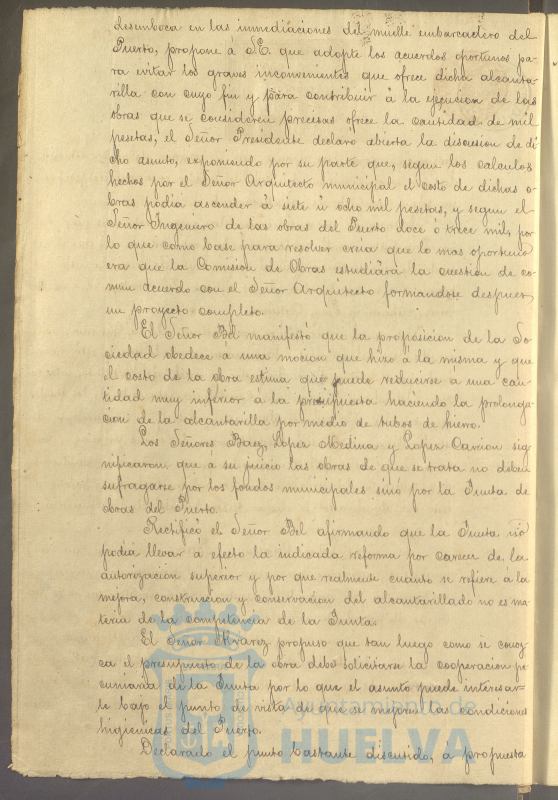 desemboca en las inmediaciones del muelle embarcadero del
Puerto, propone á S.E. que adopte los acuerdos oportunos pa-
ra evitar los graves inconvenientes que ofrece dicha alcanta-
rilla con cuyo fin y para contribuir á la ejecucion de las
obras que se consideren precisas ofrece la cantidad de mil
pesetas, el Señor Presidente declaró abierta la discusion de di-
cho asunto, exponiendo por su parte que, segun los calculos
hechos por el Señor Arquitecto municipal el costo de dichas o-
bras podia ascender á siete ú ocho mil pesetas, y segun el
Señor Ingeniero de las obras del Puerto doce ó trece mil, por
lo que como base para resolver creia que lo mas oportuno
era que la Comision de Obras estudiára la cuestion de co-
mun acuerdo con el Señor Arquitecto formandose despues
un proyecto completo.
El Señor Bel manifestó que la proposicion de la So-
ciedad obedece á una mocion que hizo á la misma y que
el costo de la obra estima que puede reducirse á una can-
tidad muy inferior a la presupuesta haciendo la prolonga-
cion de la alcantarilla por medio de tubos de hierro.
Los Señores Baez, Lopez Medina y Lopez Carrion sig-
nificaron que á su juicio las obras de que se trata no deben
sufragarse por los fondos municipales sinó por la Junta de
obras del Puerto.
Rectificó el Señor Bel afirmando que la Junta no
podia llevar á efecto la indicada reforma por carecer de la
autorizacion superior y por que realmente cuanto se refiere á la
mejora, construccion y conservacion del alcantarillado no es ma-
teria de la competencia de la Junta.
El Señor Alvarez propuso que tan luego como se conoz-
ca el presupuesto de la obra debe solicitarse la cooperacion pe-
cuniaria de la Junta por lo que el asunto puede interesar-
le bajo el punto de vista de que se mejoren las condiciones
higienicas del Puerto.
Declarado el punto bastante discutido, á propuesta
Ayuntamiento de
HUELVA